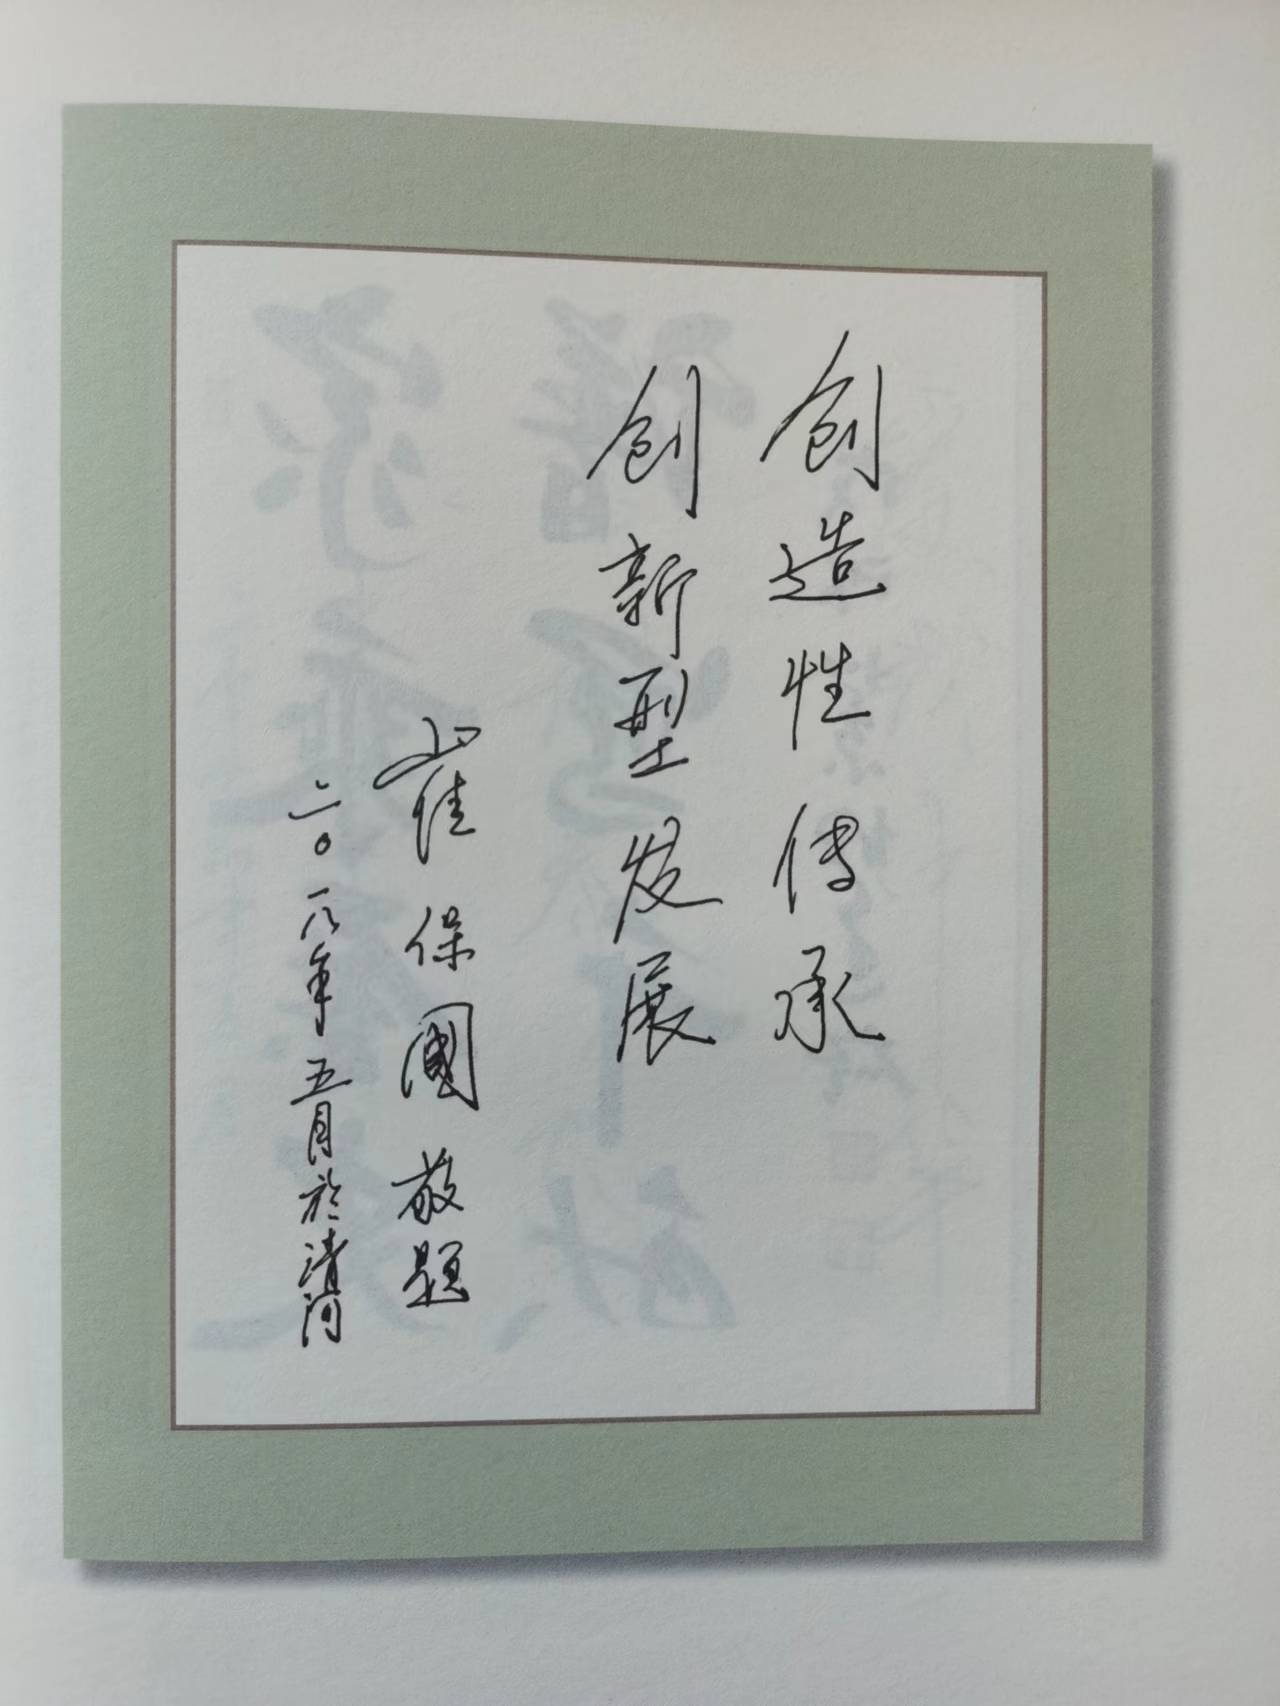 创造性传承
创新型发展
崔保國敬題
二〇一八年五月於清河